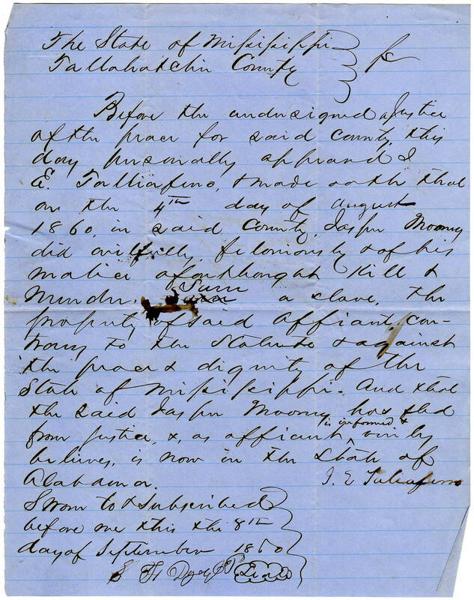 The State of Mississippi
Tallahatchie County
Before the undersigned a Justice
of the peace for said county, this
day personally appeared J
E. Talliaferro, & made oath that
on the 4th day of August
1860, in said County, Jasper Mooney
did wilfully, feloniously & of his
malice aforethought Kill &
Murder, Sam a slave, the
property of said Affiant, con-
trary to the Statute & against
the peace & dignity of the
State of Mississippi. And that
the said Jasper Mooney has fled
from Justice, &, as affiant is informed & verily
believes, is now in the State of
Alabama.
J. E. Taliaferro
Sworn to & subscribed
before me this the 8th
day of September 1860